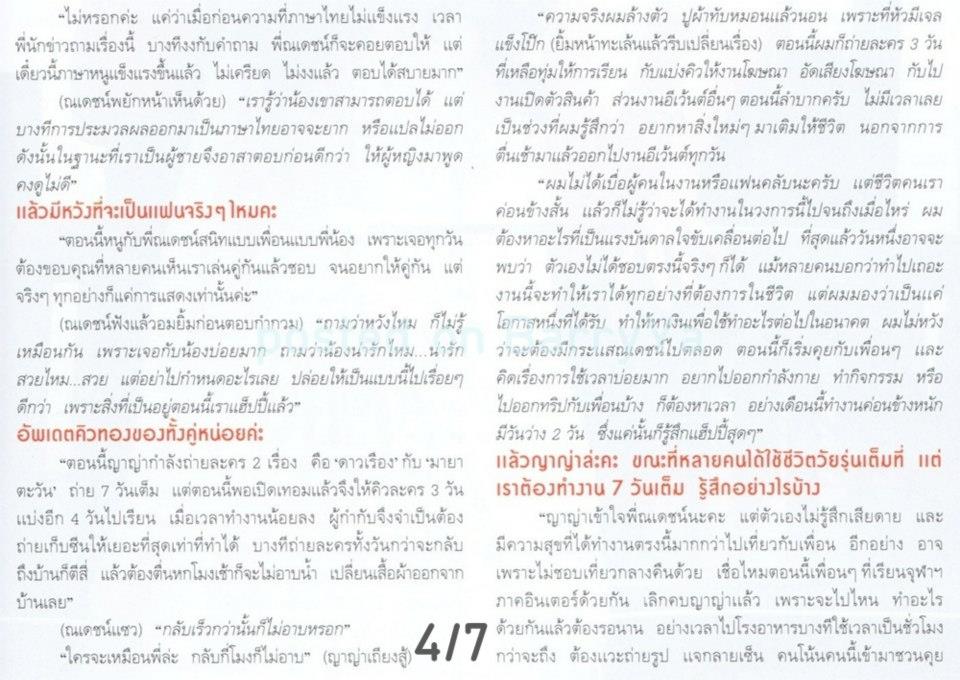 “ไม่หรอกค่ะ แค่ว่าเมื่อก่อนความที่ภาษาไทยไม่แข็งแรง เวลา
พี่นักข่าวถามเรื่องนี้ บางทีงงกับคำถาม พี่ณเดชน์ก็จะคอยตอบให้ แต่
เดี๋ยวนี้ภาษาหนูแข็งแรงขึ้นแล้ว ไม่เครียด ไม่งงแล้ว ตอบได้สบายมาก”
(ณเดชน์พยักหน้าเห็นด้วย) “เรารู้ว่าน้องเขาสามารถตอบได้ แต่
บางทีการประมวลผลออกมาเป็นภาษาไทยอาจจะยาก หรือแปลไม่ออก
ดังนั้นในฐานะที่เราเป็นผู้ชายจึงอาสาตอบก่อนดีกว่า ให้ผู้หญิงมาพูด
คงดูไม่ดี”
แล้วมีหวังที่จะเป็นแฟนจริงๆ ไหมคะ
“ตอนนี้หนูกับพี่ณเดชน์สนิทแบบเพื่อนแบบพี่น้อง เพราะเจอทุกวัน
ต้องขอบคุณที่หลายคนเห็นเราเล่นคู่กันแล้วชอบ จนอยากให้คู่กัน แต่
จริงๆ ทุกอย่างก็แค่การแสดงเท่านั้นค่ะ”
(ณเดชน์ฟังแล้วอมยิ้มก่อนตอบกำกวม) “ถามว่าหวังไหม ก็ไม่รู้
เหมือนกัน เพราะเจอกับน้องบ่อยมาก ถามว่าน้องน่ารักไหม...น่ารัก
สวยไหม...สวย แต่อย่าไปกำหนดอะไรเลย ปล่อยให้เป็นแบบนี้ไปเรื่อยๆ
ดีกว่า เพราะสิ่งที่เป็นอยู่ตอนนี้เราแฮ็ปปี้แล้ว”
อัพเดตคิวทองของทั้งคู่หน่อยค่ะ
“ตอนนี้ญาญ่ากำลังถ่ายละคร 2 เรื่อง คือ ‘ดาวเรือง’ กับ ‘มายา
ตะวัน’ ถ่าย 7 วันเต็ม แต่ตอนนี้พอเปิดเทอมแล้วจึงให้คิวละคร 3 วัน
แบ่งอีก 4 วันไปเรียน เมื่อเวลาทำงานน้อยลง ผู้กำกับจึงจำเป็นต้อง
ถ่ายเก็บซีนให้เยอะที่สุดเท่าที่ทำได้ บางทีถ่ายละครทั้งวันกว่าจะกลับ
ถึงบ้านก็ตีสี่ แล้วต้องตื่นหกโมงเช้าก็จะไม่อาบน้ำ เปลี่ยนเสื้อผ้าออกจาก
บ้านเลย”
(ณเดชน์แซว) “กลับเร็วกว่านั้นก็ไม่อาบหรอก”
“ใครจะเหมือนพี่ล่ะ กลับกี่โมงก็ไม่อาบ” (ญาญ่าเถียงสู้)
“ความจริงผมล้างตัว ปูผ้าทับหมอนแล้วนอน เพราะที่หัวมีเจล
แข็งโป๊ก (ยิ้มหน้าทะเล้นแล้วรีบเปลี่ยนเรื่อง) ตอนนี้ผมก็ถ่ายละคร 3 วัน
ที่เหลือทุ่มให้การเรียน กับแบ่งคิวให้งานโฆษณา อัดเสียงโฆษณา กับไป
งานเปิดตัวสินค้า ส่วนงานอีเว้นต์อื่นๆ ตอนนี้ลำบากครับ ไม่มีเวลาเลย
เป็นช่วงที่ผมรู้สึกว่า อยากหาสิ่งใหม่ๆ มาเติมให้ชีวิต นอกจากการ
ตื่นเช้ามาแล้วออกไปงานอีเว้นต์ทุกวัน
“ผมไม่ได้เบื่อผู้คนในงานหรือแฟนคลับนะครับ แต่ชีวิตคนเรา
ค่อนข้างสั้น แล้วก็ไม่รู้ว่าจะได้ทำงานในวงการนี้ไปจนถึงเมื่อไหร่ ผม
ต้องหาอะไรที่เป็นแรงบันดาลใจขับเคลื่อนต่อไป ที่สุดแล้ววันหนึ่งอาจจะ
พบว่า ตัวเองไม่ได้ชอบตรงนี้จริงๆ ก็ได้ แม้หลายคนบอกว่าทำไปเถอะ
งานนี้จะทำให้เราได้ทุกอย่างที่ต้องการในชีวิต แต่ผมมองว่าเป็นแค่
โอกาสหนึ่งที่ได้รับ ทำให้หาเงินเพื่อใช้ทำอะไรต่อไปในอนาคต ผมไม่หวัง
ว่าจะต้องมีกระแสณเดชน์ไปตลอด ตอนนี้ก็เริ่มคุยกับเพื่อนๆ และ
คิดเรื่องการใช้เวลาบ่อยมาก อยากไปออกกำลังกาย ทำกิจกรรม หรือ
ไปออกทริปกับเพื่อนบ้าง ก็ต้องหาเวลา อย่างเดือนนี้ทำงานค่อนข้างหนัก
มีวันว่าง 2 วัน ซึ่งแค่นั้นก็รู้สึกแฮ็ปปี้สุดๆ”
แล้วญาญ่าล่ะคะ ขณะที่หลายคนได้ใช้ชีวิตวัยรุ่นเต็มที่ แต่
เราต้องทำงาน 7 วันเต็ม รู้สึกอย่างไรบ้าง
“ญาญ่าเข้าใจพี่ณเดชน์นะคะ แต่ตัวเองไม่รู้สึกเสียดาย และ
มีความสุขที่ได้ทำงานตรงนี้มากกว่าไปเที่ยวกับเพื่อน อีกอย่าง อาจ
เพราะไม่ชอบเที่ยวกลางคืนด้วย เชื่อไหมตอนนี้เพื่อนๆ ที่เรียนจุฬาฯ
ภาคอินเตอร์ด้วยกัน เลิกคบญาญ่าแล้ว เพราะจะไปไหน ทำอะไร
ด้วยกันแล้วต้องรอนาน อย่างเวลาไปโรงอาหารบางทีใช้เวลาเป็นชั่วโมง
กว่าจะถึง ต้องแวะถ่ายรูป แจกลายเซ็น คนโน้นคนนี้เข้ามาชวนคุย
posted on BarryYa
4/7